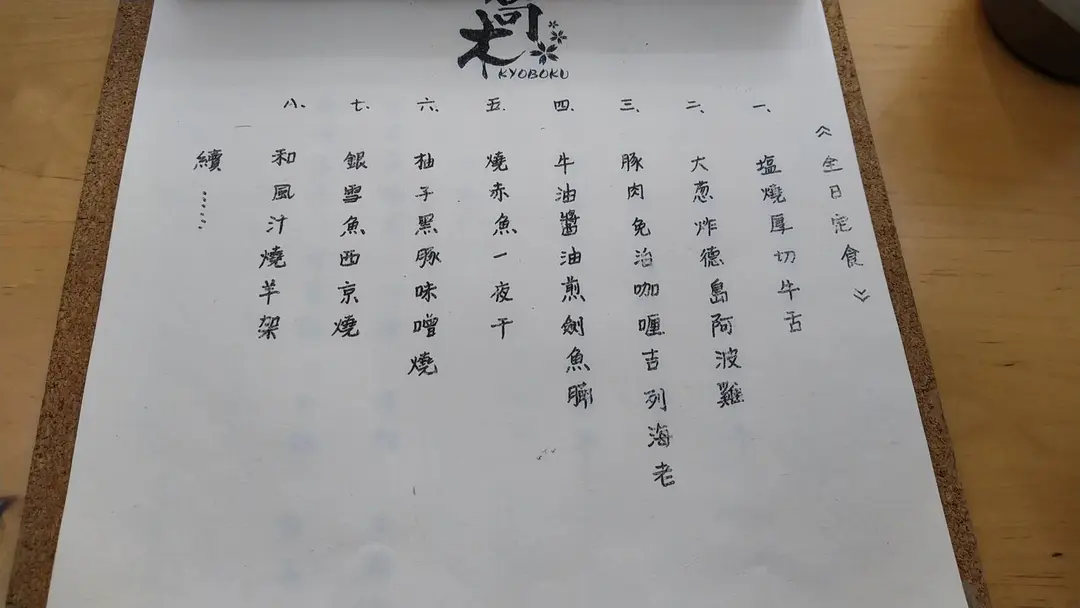 喬木
KYOBOKU
《全日定食》
一、塩燒厚切牛舌
二、大葱炸德島阿波雞
三、豚肉免治咖喱吉列海老
四、牛油醬油煎劍魚腩
五、燒赤魚一夜干
六、柚子黑豚味噌燒
七、銀雪魚西京燒
八、和風汁燒羊架
續⋯⋯